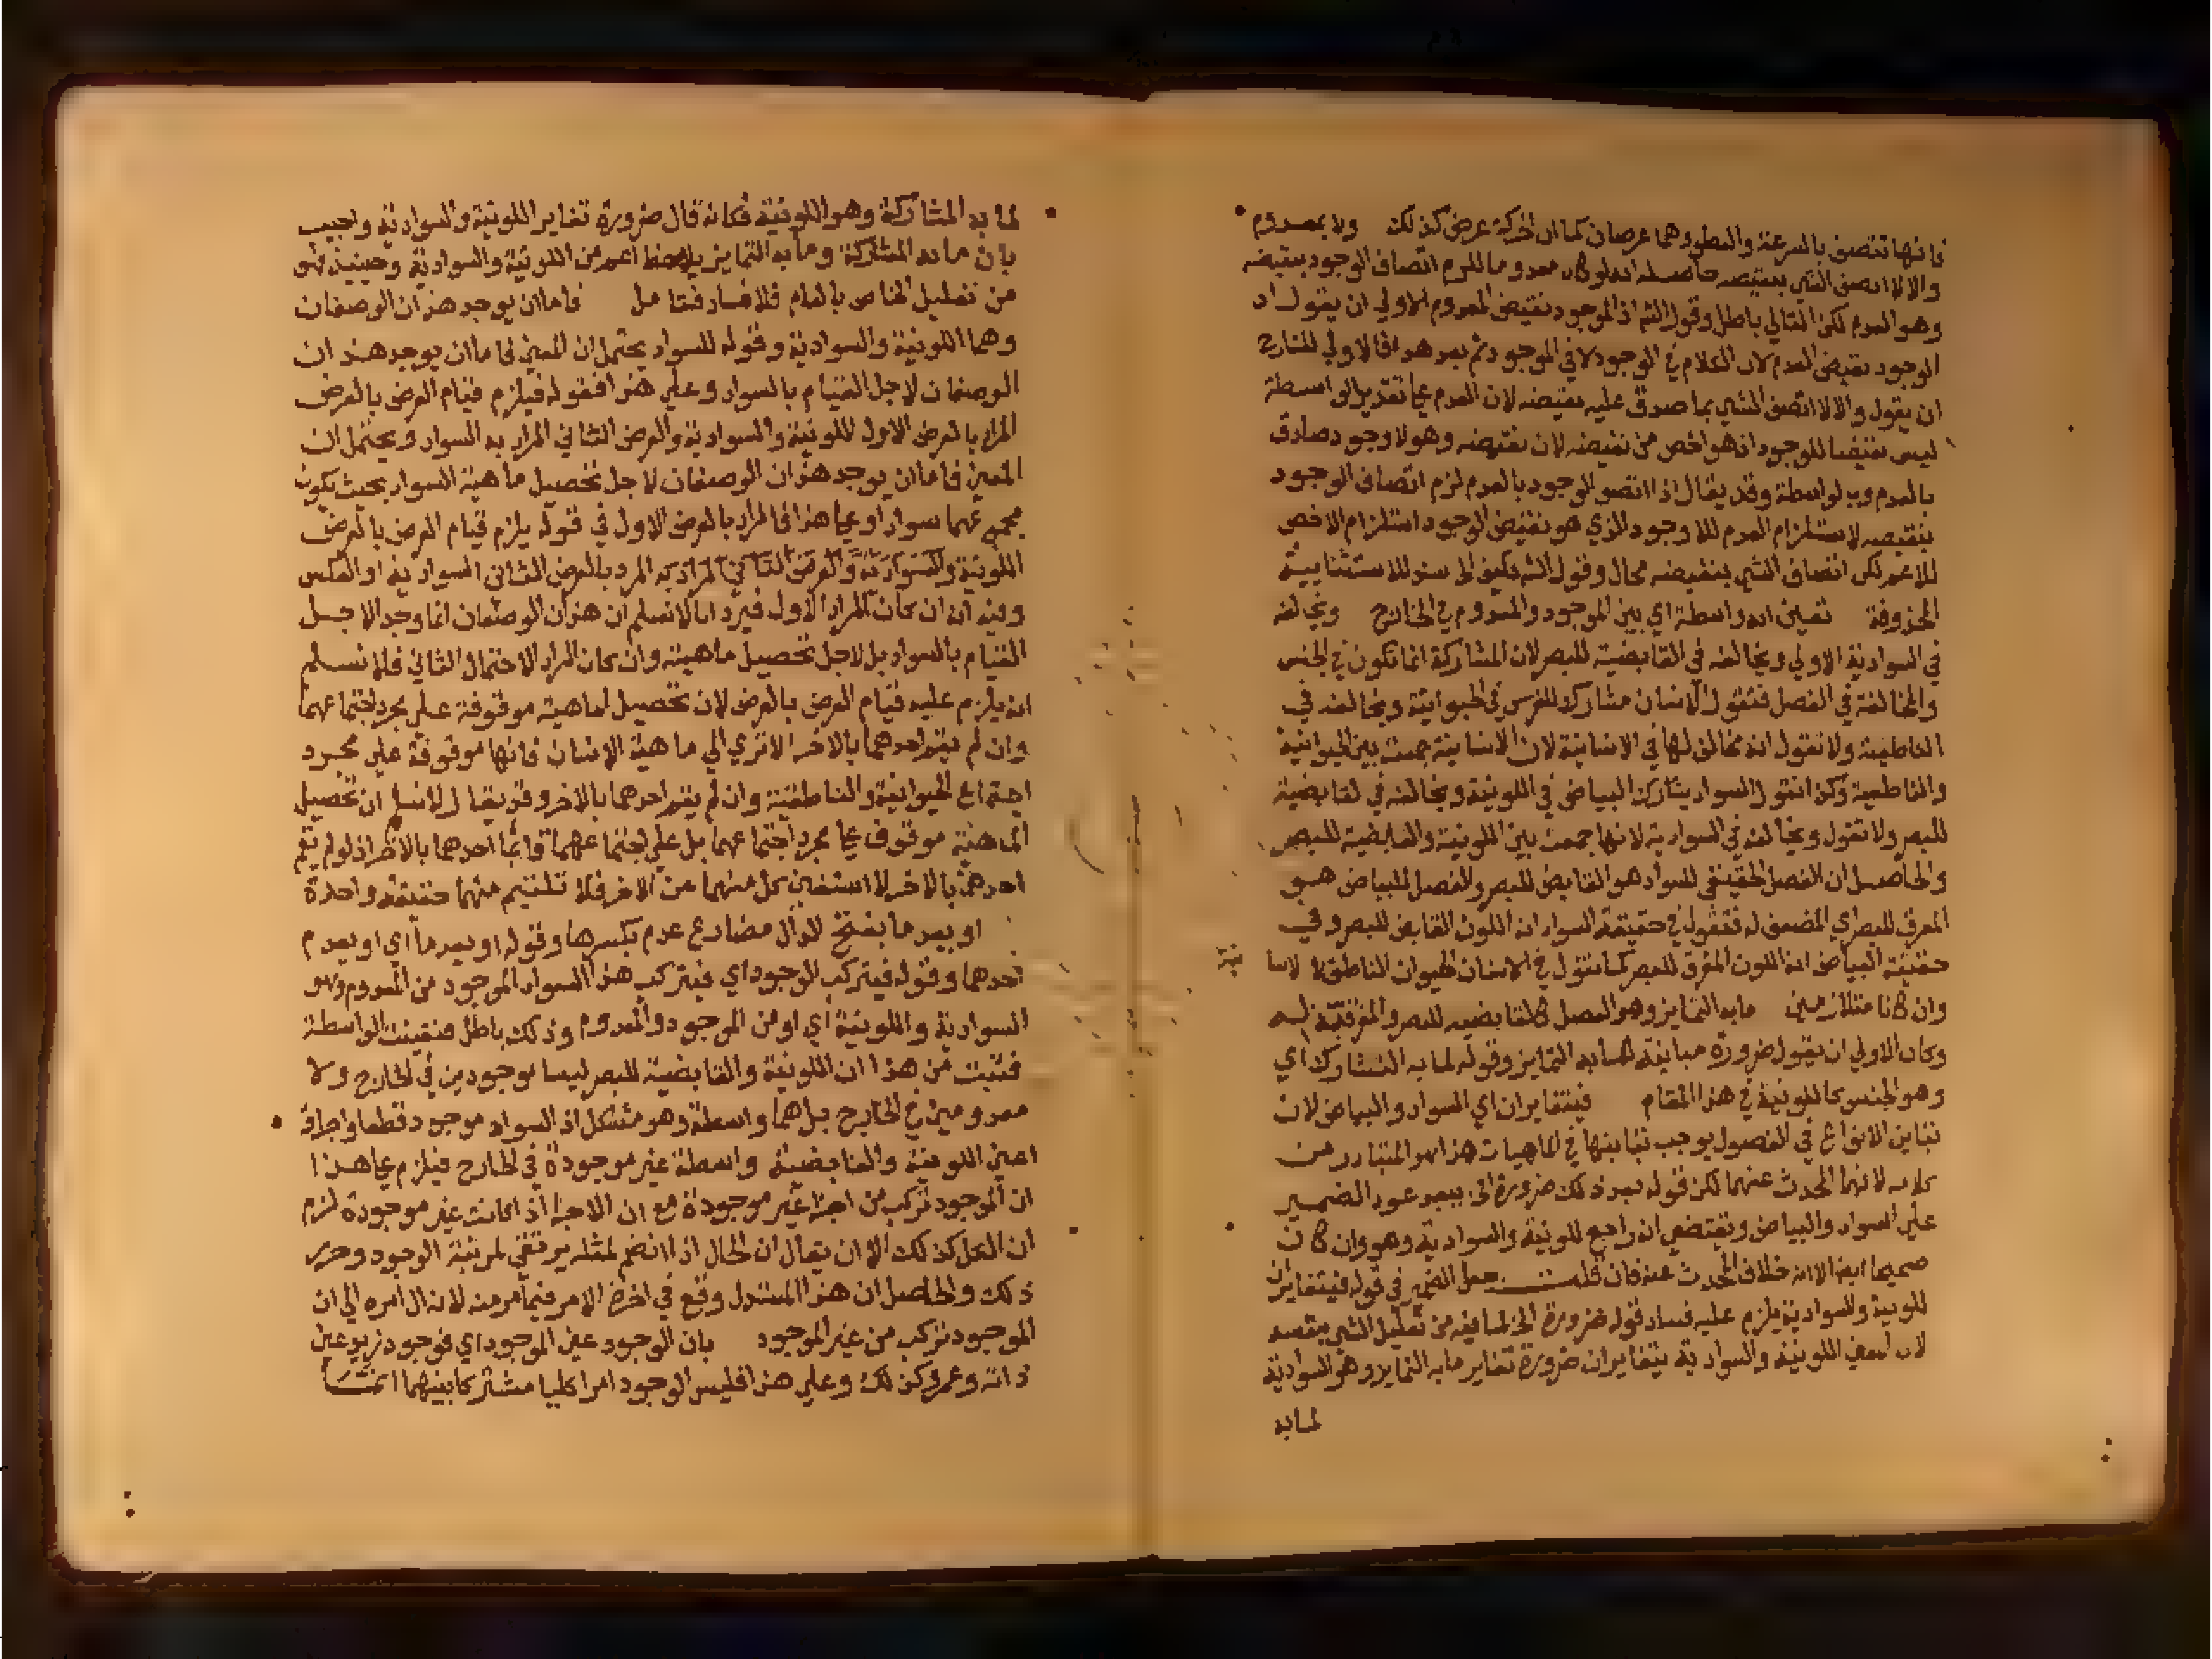 فانها تتصف بالسرعة والبطو وهما عرضان كما ان الحركة عرض كذلك ولا بمعدوم
والا لا اتصف الشي بنقيضه حاصله انه لو كان معدوما للزم اتصاف الوجود بنقيضه
وهو العدم لكن التالي باطل وقول الشم اذ الموجود نقيض المعدوم الاولي ان يقول اذ
الوجود نقيض العدم لان الكلام في الوجود لا في الموجود ثم بعد هذا فالاولي للشارح
ان يقول والا لا اتصف الشي بما صدق عليه نقيضه لان العدم علي تقدير الواسطة
ليس نقيضا للوجود اذ هو اخص من نقيضه لان نقيضه وهو لا وجود صادق
بالعدم وبالواسطة وقد يقال اذا اتصف الوجود بالعدم لزم اتصاف الوجود
بنقيضه لاستلزام العدم للا وجود الذي هو نقيض الوجود استلزام الاخص
للاعم لكن اتصاف الشي بنقيضه محال وقول الشم يكفي الى سند للاستثنايية
المحذوفة تعين انه واسطة اي بين الموجود والمعدوم في الخارج ويخالفه
في السوادية الاولي ويخالفه في القابضية للبصر لان المشاركة انما تكون في الجنس
والمخالفة في الفصل فتقول الانسان مشارك للفرس في الحيوانية ويخالفه في
الناطقية ولا تقول انه مخالف لها في الانسانية لان الانسانية جمعت بين الحيوانية
والناطقية وكذا تقول السواد يشارك البياض في اللونية ويخالفه في القابضية
للبصر ولا تقول ويخالفه في السوادية لانها جمعت بين اللونية والقابضية للبصر
والحاصل ان الفصل الحقيقي للسواد هو القابض للبصر والفصل للبياض هو
المفرق للبصر اي المضعف له فتقول في حقيقة السواد انه اللون القابض للبصر وفي
حقيقة البياض انه اللون المفرق للبصر كما تقول في الانسان الحيوان الناطق لا الانسا
نية
وان كانا متلازمين مابه التمايز وهو الفصل كالقابضيه للبصر والمفرقية له
وكان الاولي ان يقول ضرورة مباينة لما به التمايز وقوله لما به التشارك اي
وهو الجنس كاللونية في هذا المقام فيتغايران اي السواد والبياض لان
تباين الانواع في الفصول يوجب تباينها في الماهيات هذا هو المتبادر من
كلامه لانهما المحدث عنهما لكن قوله بعد ذلك ضرورة الخ يبعد عود الضمير
علي السواد والبياض ويقتضي انه راجع للونية والسوادية وهو وان كان
صحيحا ايضا الا انه خلاف المحدث عنه فان قلت جعل الضمير في قوله فيتغايران
للونية والسوادية يلزم عليه فساد قوله ضرورة الخ لما فيه من تعليل الشي بنفسه
لان المعني اللونية والسوادية يتغايران ضرورة تغاير مابه التمايز وهو السوادية
لمابه
لما به المشاركة وهو اللونية فكانه قال ضرورة تغاير اللونية والسوادية واجيب
بان ما به المشاركة وما به التمايز يلاحظ اعم من اللونية والسوادية وحينيذ فهو
من تعليل الخاص بالعام فلا فساد فتامل فاما ان يوجد هذان الوصفان
وهما اللونية والسوادية وقوله للسواد يحتمل ان المعني فاما ان يوجد هذان
الوصفان لاجل القيام بالسواد وعلي هذا فقوله فيلزم قيام العرض بالعرض
المراد بالعرض الاول اللونية والسوادية والعرض الثاني المراد به السواد ويحتمل ان
المعني فاما ان يوجد هذان الوصفان لاجل تحصيل ماهية السواد بحيث يكون
مجموعهما سوادا وعلي هذا فالمراد بالعرض الاول في قوله يلزم قيام العرض بالعرض
اللونية والسوادية والعرض الثاني المراد به المراد بالعرض الثاني السوادية او العكس
وفيه انه ان كان المراد الاول فيرد انا لا نسلم ان هذان الوصفان انما وجدا لاجل
القيام بالسواد بل لاجل تحصيل ماهيته وان كان المراد الاحتمال الثاني فلا نسلم
انه يلزم عليه قيام العرض بالعرض لان تحصيل الماهية موقوفة علي مجرد اجتماعهما
وان لم يقم احدهما بالاخر الا تري الي ماهية الانسان فانها موقوفة علي مجرد
اجتماع الحيوانية والناطقية وان لم يقم احدهما بالاخر وقد يقال لا نسلم ان تحصيل
الماهية موقوف علي مجرد اجتماعهما بل علي اجتماعهما قايما احدهما بالاخر اذ لو لم يقم
احدهما بالاخر لاستغني كل منهما عن الاخر فلا تلتيم منهما حقيقة واحدة
او يعدما بفتح الدال مضارع عدم بكسرها وقوله او يعدما اي او يعدم
احدهما وقوله فيتركب الوجود اي فيتركب هذا السواد الموجود من المعدوم وهو
السوادية واللونية اي او من الموجود والمعدوم وذلك باطل فتعينت الواسطة
فثبت من هذا ان اللونية والقابضية للبصر ليسا موجودين في الخارج ولا
معدومين في الخارج بل هما واسطة وهو مشكل اذ السواد موجود قطعا واجزاؤه
اعني اللونية والقابضية واسطة غير موجودة في الخارج فيلزم علي هذا
ان الموجود تركب من اجزا غير موجودة مع ان الاجزا اذا كانت غير موجودة لزم
ان الكل كذلك الا ان يقال ان الحال اذا انضم لمثله يرتقي لمرتبة الوجود وحرر
ذلك والحاصل ان هذا المستدل وقع في اخر الامر فيما فر منه لانه ال امره الي ان
الموجود تركب من غير الموجود بان الوجود عين الموجود اي فوجود زيد عين
ذاته وعمرو كذلك وعلي هذا فليس الوجود امرا كليا مشتركا بينهما